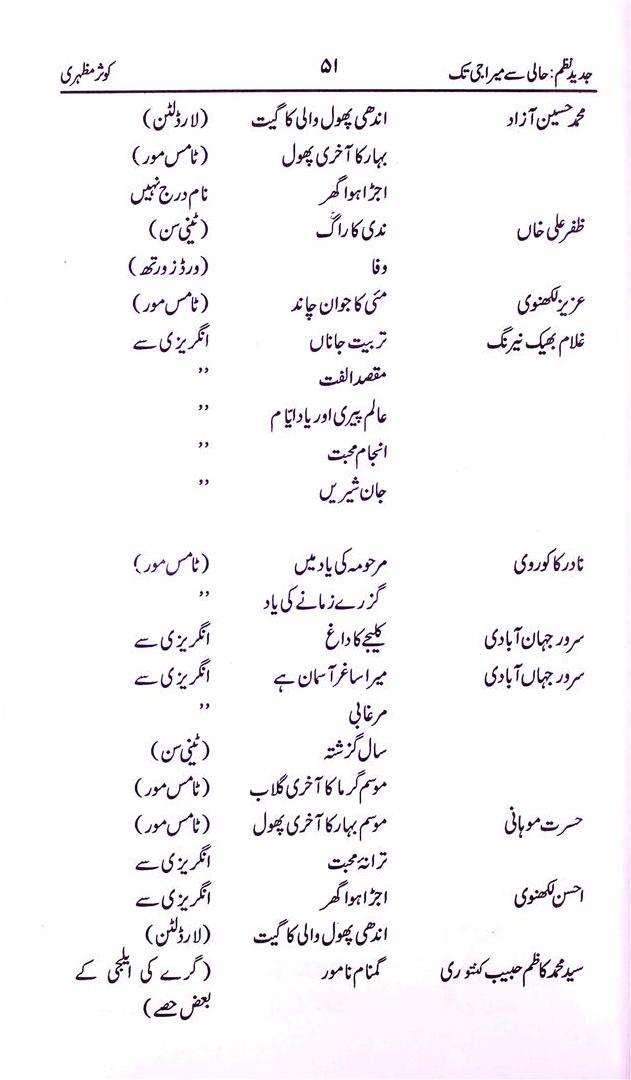 جدید نظم: حالی سے میراجی تک ۵۱ کوثر مظہری
محمد حسین آزاد اندھی پھول والی کا گیت (لارڈ لٹن)
بہار کا آخری پھول (ٹامس مور)
اجڑا ہوا گھر نام درج نہیں
ظفر علی خاں ندی کا راگ (ٹینی سن)
وفا (ورڈزورتھ)
عزیز لکھنوی مئی کا جوان چاند (ٹامس مور)
غلام بھیک نیرنگ تربیت جاناں انگریزی سے
مقصد الفت ,,
عالم پیری اور یاد ایّام ,,
انجام محبت ,,
جان شیریں ,,
نادر کاکوروی مرحومہ کی یاد میں (ٹامس مور)
گزرے زمانے کی یاد ,,
سرور جہان آبادی کلیجے کا داغ انگریزی سے
سرور جہاں آبادی میرا ساغر آسمان ہے انگریزی سے
مرغابی ,,
سال گزشتہ (ٹینی سن)
موسم گرما کا آخری گلاب (ٹامس مور)
حسرت موہانی موسم بہار کا آخری پھول (ٹامس مور)
ترانۂ محبت انگریزی سے
احسن لکھنوی اجڑا ہوا گھر انگریزی سے
اندھی پھول والی کا گیت (لارڈ لٹن)
سید محمد کاظم حبیب کنتوری گمنام نامور (گرے کی ایلجی کے
بعض حصے)